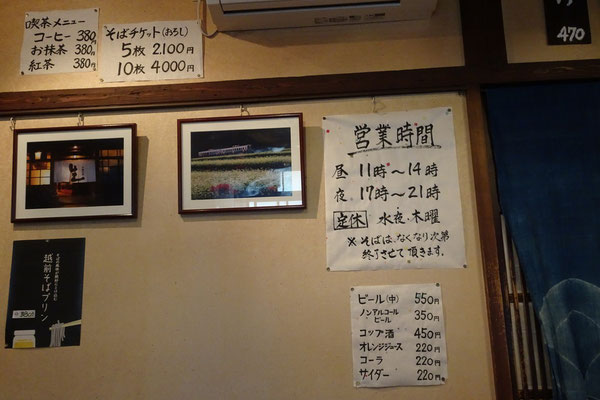 喫茶メニュー
コーヒー 380円
お抹茶 380円
紅茶 380円
そばチケット(おろし)
5枚 2.100円
10枚 4000円
470
営業時間
昼 11時〜14時
夜 17時〜21時
定休 水夜・木曜
※そばは、なくなり次第
終了させて頂きます。
越前そばプリン
ビール(中) 550円
ノンアルコール
ビール 350円
コップ酒 450円
オレンジジュース 220円
コーラ 220円
サイダー 220円